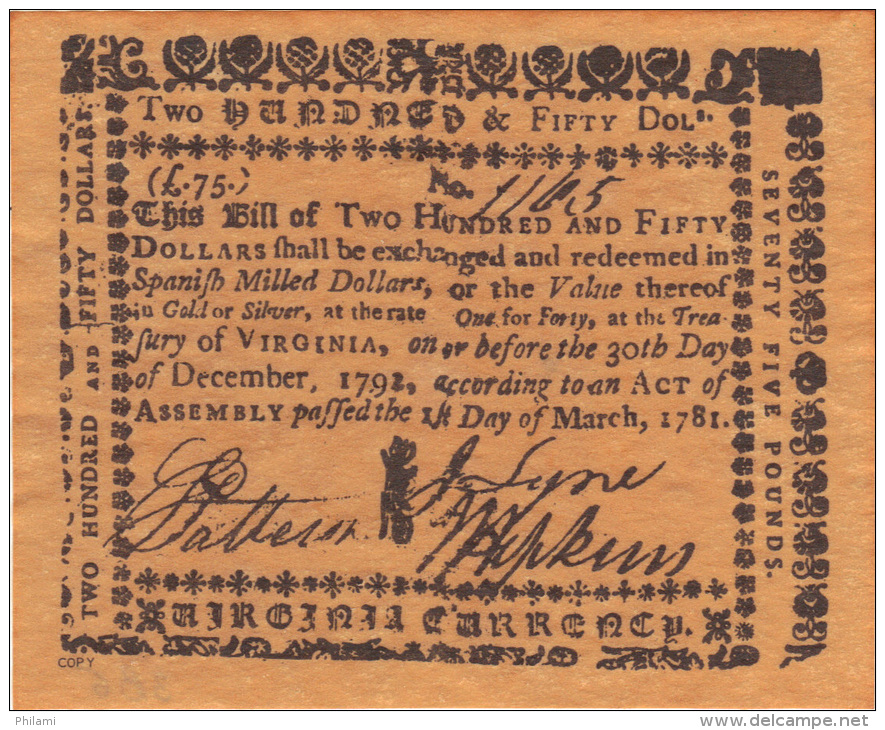 TWO HUNDNED & FIFTY DOLs.
(£.75.) No. 11615
This Bill of TWO HUNDRED AND FIFTY
DOLLARS ſhall be exchanged and redeemed in
Spaniſh Milled Dollars, or the Value thereof
in Gold or Silver, at the rate One for Forty, at the Trea-
ſury of VIRGINIA, on or before the 30th Day
of December, 1792, according to an ACT of
ASSEMBLY paſſed the 1ſt Day of March, 1781.
J. Lyne
Hopkins
VIRGINIA CURRENCY.
TWO HUNDRED AND FIFTY DOLLARS.
SEVENTY FIVE POUNDS.
COPY
Philami
www.delcampe.net